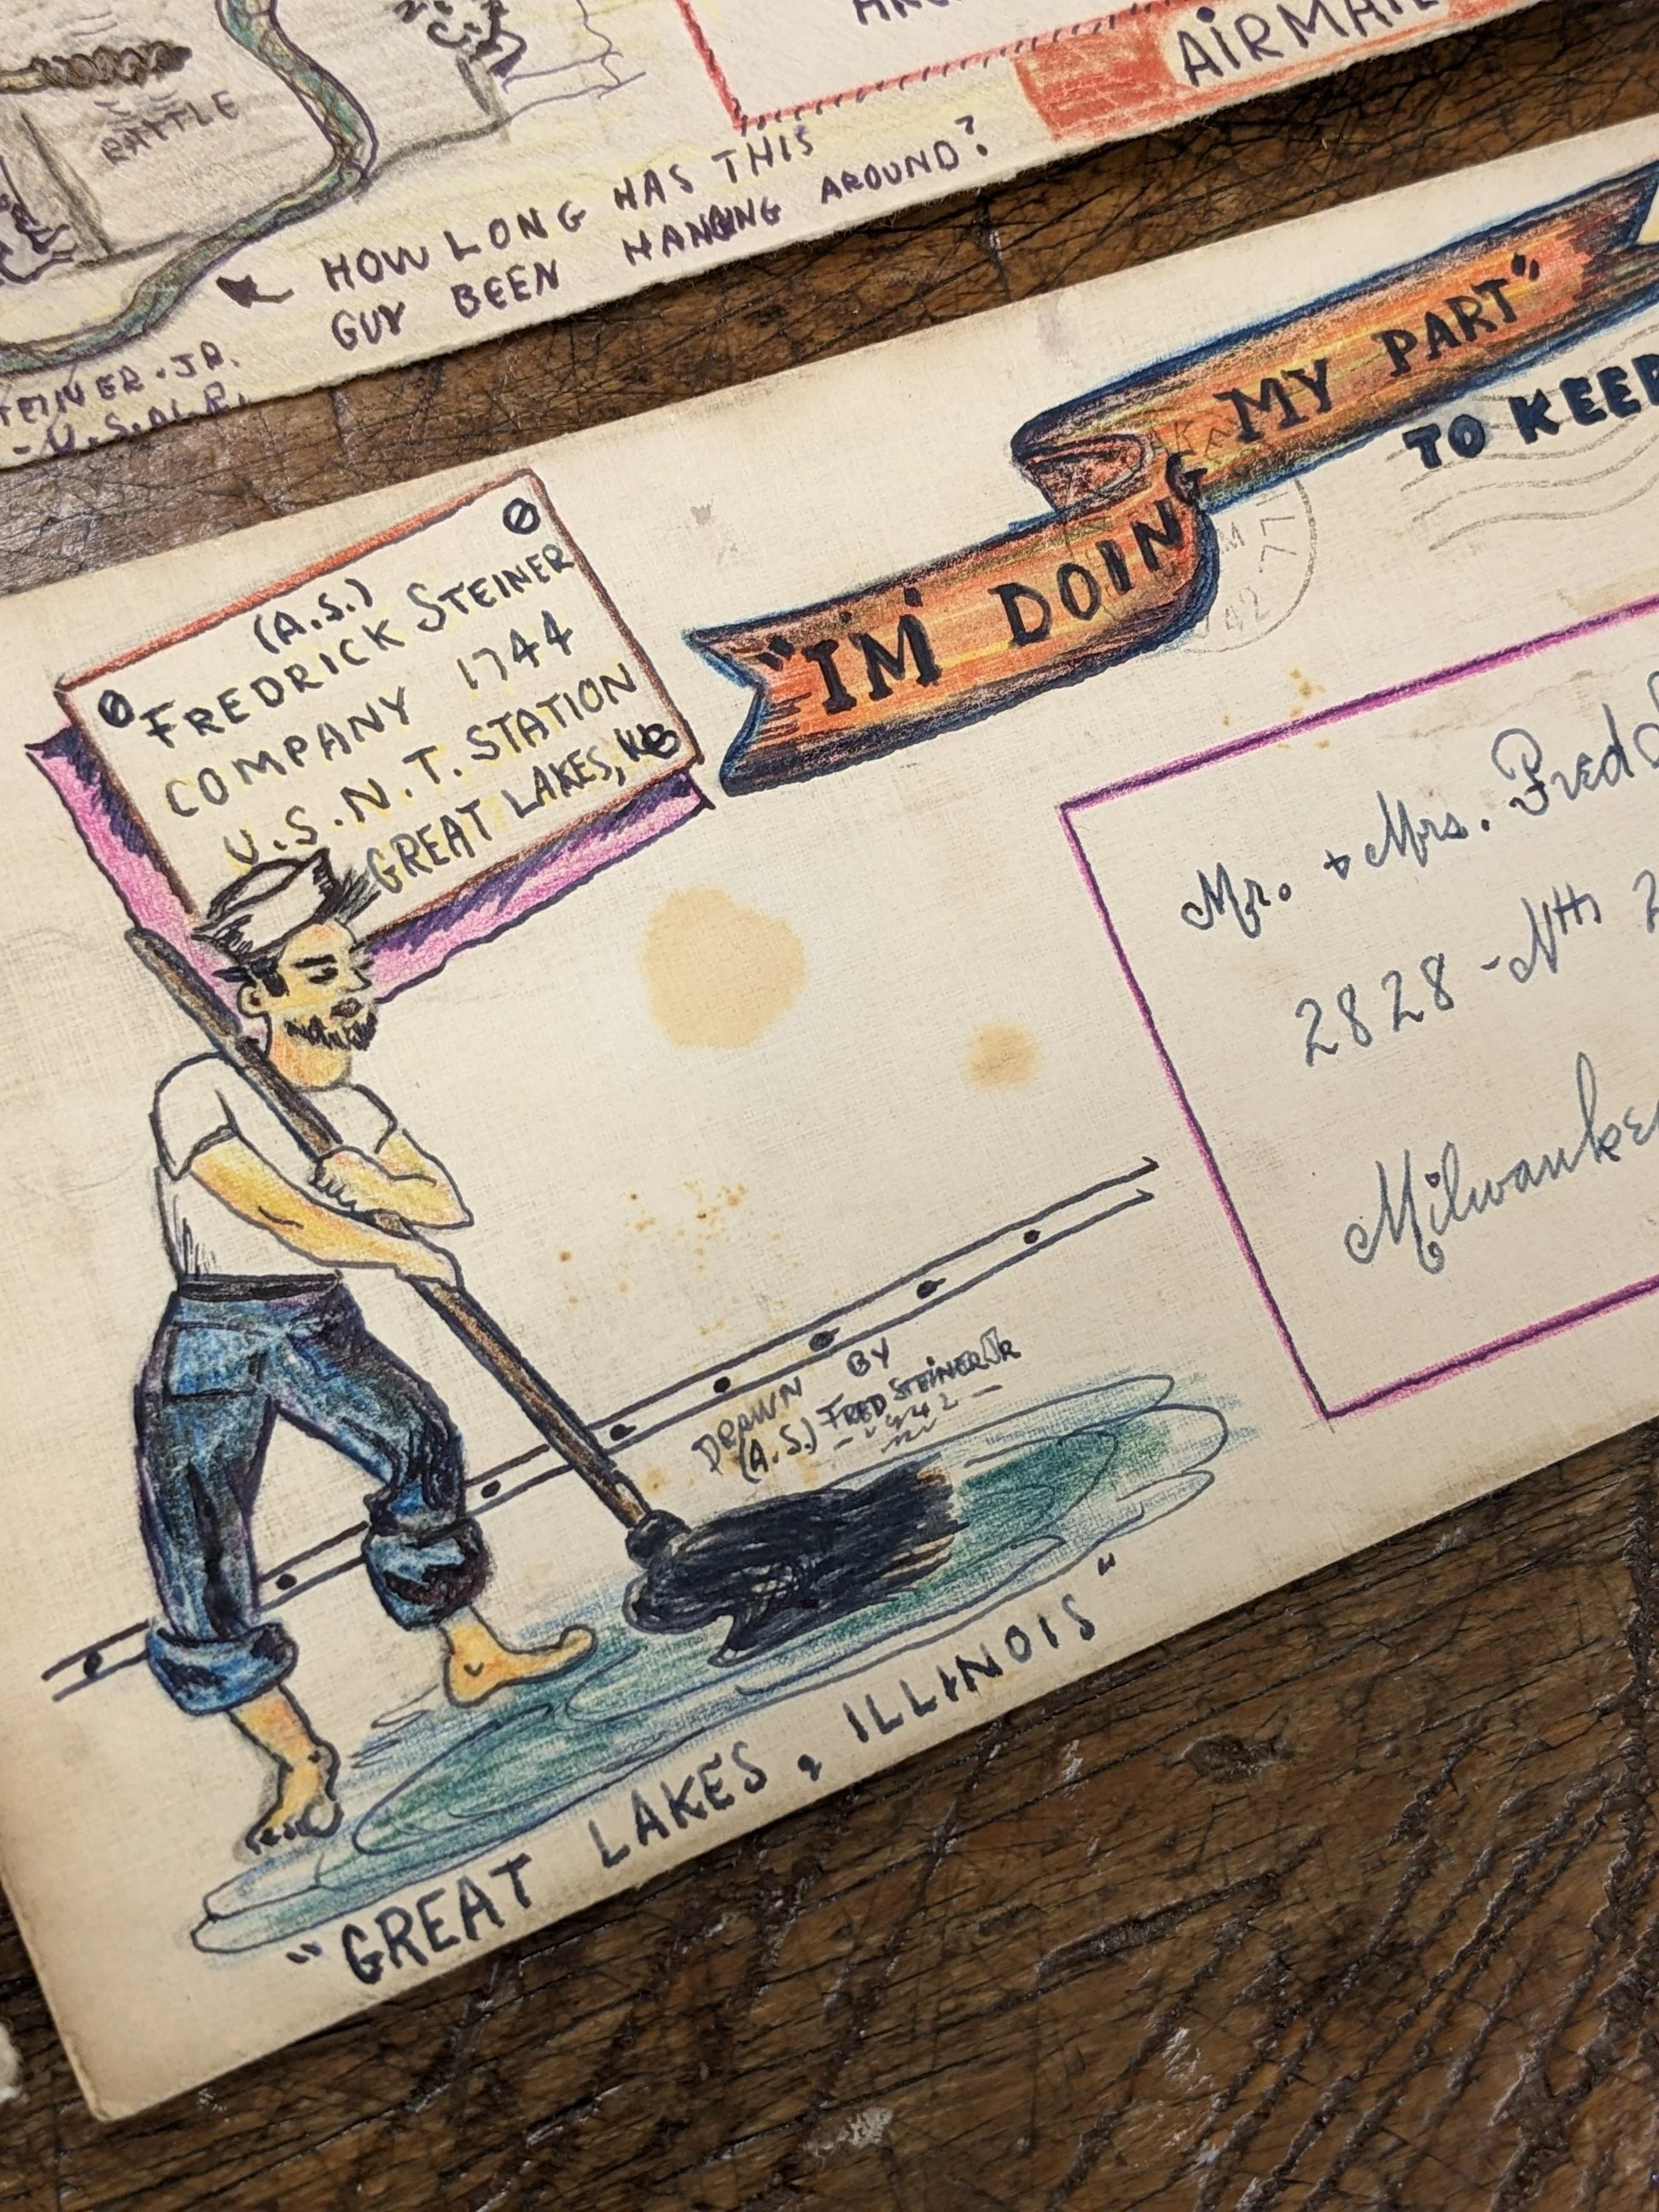 RATTLE
AIRMAIL
HOW LONG HAS THIS
GUY BEEN HANGING AROUND?
STEINER-JR.
(A.S.)
FREDRICK STEINER
COMPANY 1744
U.S.N.T. STATION
GREAT LAKES,
"I'M DOING MY PART"
TO KEEP
42
Mr. + Mrs. Fred
2828 - Nth 2
Milwaukee
DRAWN BY
(A.S.) FRED STEINER JR
-1942-
"GREAT LAKES, ILLINOIS"